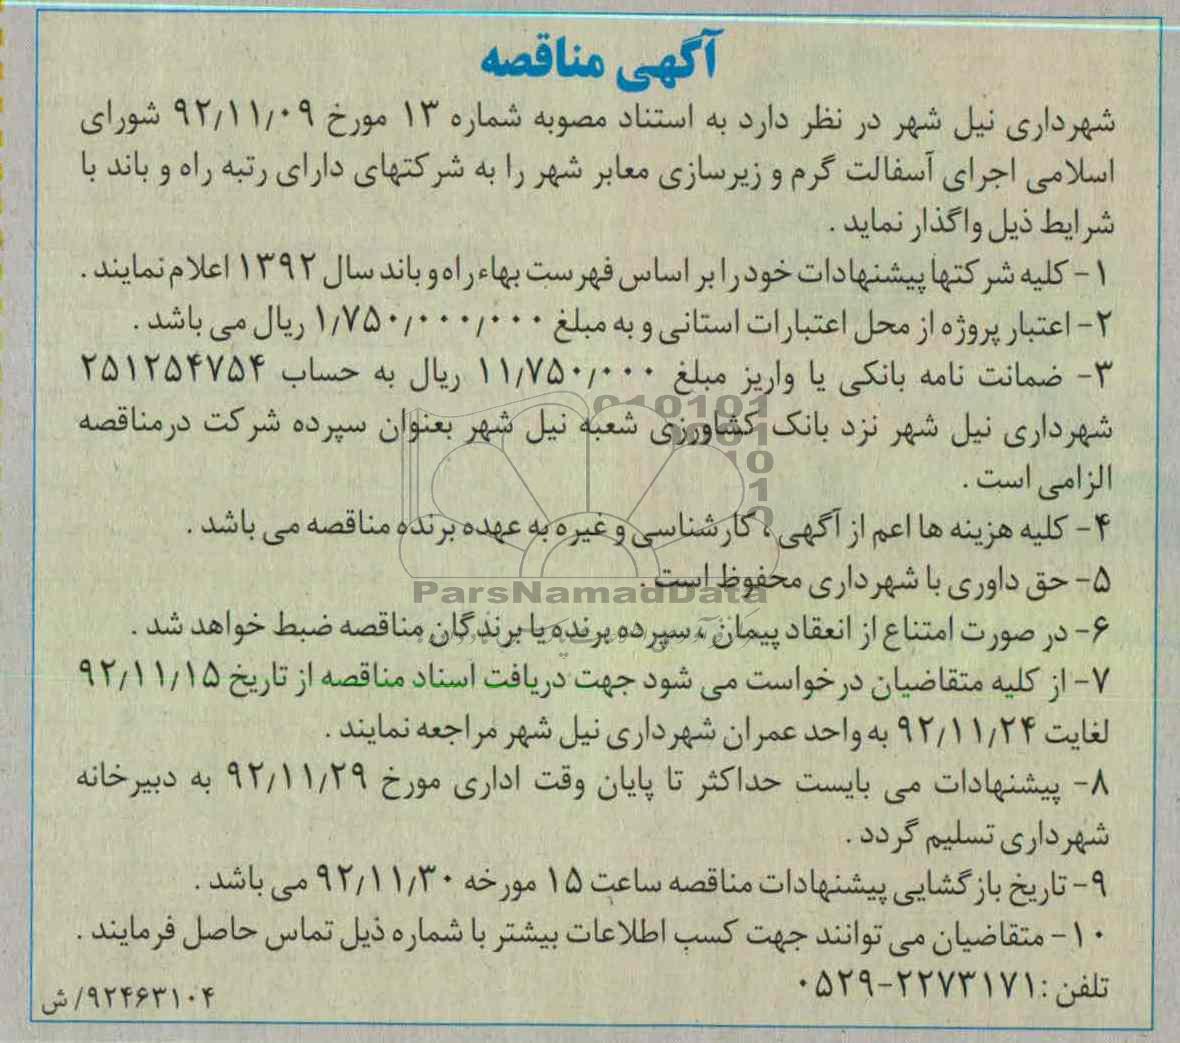 آگهی مناقصه
شهرداری نیل شهر در نظر دارد به استناد مصوبه شماره ۱۳ مورخ ۹۲/۱۱/۰۹ شورای
اسلامی اجرای آسفالت گرم و زیرسازی معابر شهر را به شرکتهای دارای رتبه راه و باند با
شرایط ذیل واگذار نماید .
۱- کلیه شرکتها پیشنهادات خود را بر اساس فهرست بهاء راه و باند سال ۱۳۹۲ اعلام نمایند .
۲- اعتبار پروژه از محل اعتبارات استانی و به مبلغ ۱/۷۵۰/۰۰۰/۰۰۰ ریال می باشد .
۳- ضمانت نامه بانکی یا واریز مبلغ ۱۱/۷۵۰/۰۰۰ ریال به حساب ۲۵۱۲۵۴۷۵۴
شهرداری نیل شهر نزد بانک کشاورزی شعبه نیل شهر بعنوان سپرده شرکت درمناقصه
الزامی است .
۴- کلیه هزینه ها اعم از آگهی ، کارشناسی و غیره به عهده برنده مناقصه می باشد .
۵- حق داوری با شهرداری محفوظ است .
۶- در صورت امتناع از انعقاد پیمان ، سپرده برنده یا برندگان مناقصه ضبط خواهد شد .
۷- از کلیه متقاضیان درخواست می شود جهت دریافت اسناد مناقصه از تاریخ ۹۲/۱۱/۱۵
لغایت ۹۲/۱۱/۲۴ به واحد عمران شهرداری نیل شهر مراجعه نمایند .
۸- پیشنهادات می بایست حداکثر تا پایان وقت اداری مورخ ۹۲/۱۱/۲۹ به دبیرخانه
شهرداری تسلیم گردد .
۹- تاریخ بازگشایی پیشنهادات مناقصه ساعت ۱۵ مورخه ۹۲/۱۱/۳۰ می باشد .
۱۰- متقاضیان می توانند جهت کسب اطلاعات بیشتر با شماره ذیل تماس حاصل فرمایند .
تلفن : ۰۵۲۹-۲۲۷۳۱۷۱
۹۲۴۶۳۱۰۴/ ش
ParsNamadData